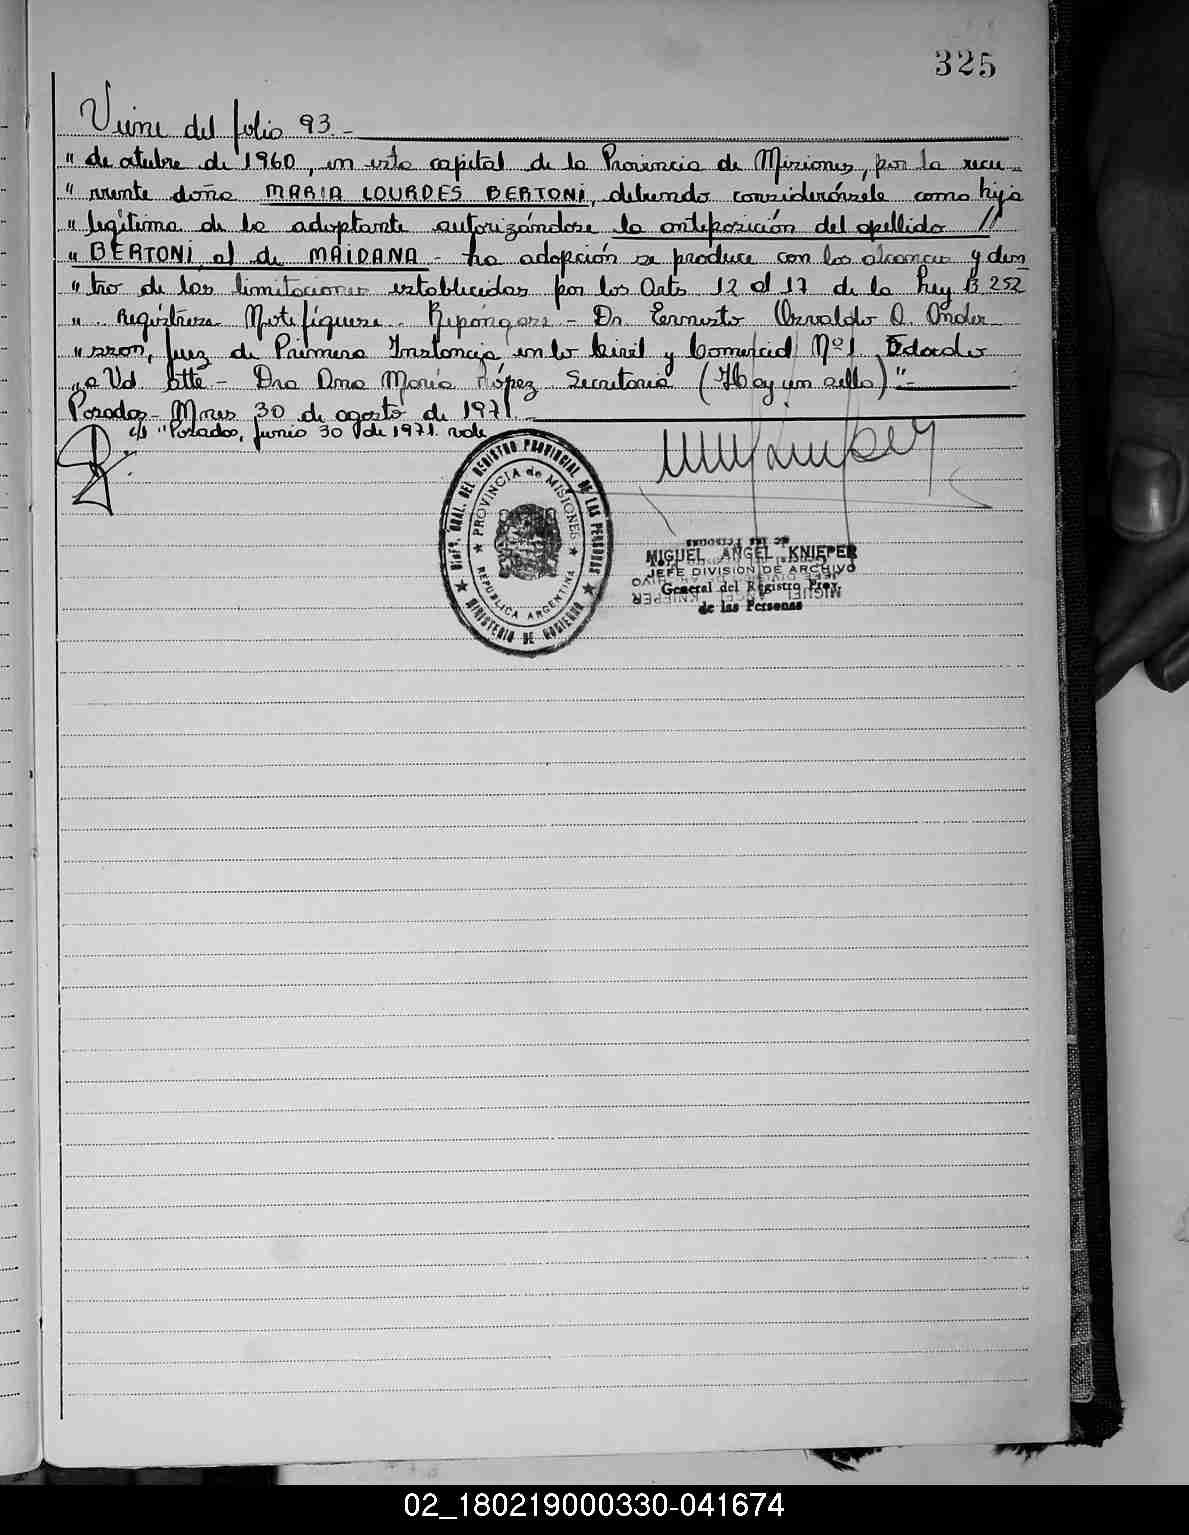 325
Viene del folio 93.-
" de octubre de 1960, en esta capital de la Provincia de Misiones, por la recu-
" rrente doña MARIA LOURDES BERTONI, debiendo considerársele como hija
" legítima de la adoptante autorizándose la anteposición del apellido //
" BERTONI al de MAIDANA - La adopción se produce con los alcances y den
" tro de las limitaciones establecidas por los Arts 12 al 17 de la Ley 13252
" .. Regístrese. Notifíquese. Repóngase - Dr. Ernesto Osvaldo A. Ander
" sson, Juez de Primera Instancia en lo Civil y Comercial Nº 1
" a Vd. atte - Dra Ana María López Secretaria (Hay un sello)"-
Posadas - Mnes 30 de agosto de 1971.-
c/s "Posadas, Junio 30 de 1971. vale
DIREC. GRAL. DEL REGISTRO PROVINCIAL DE LAS PERSONAS
PROVINCIA de MISIONES
REPUBLICA ARGENTINA
MINISTERIO DE GOBIERNO
MIGUEL ANGEL KNIEPER
JEFE DIVISION DE ARCHIVO
General del Registro Prov.
de las Personas
02_180219000330-041674